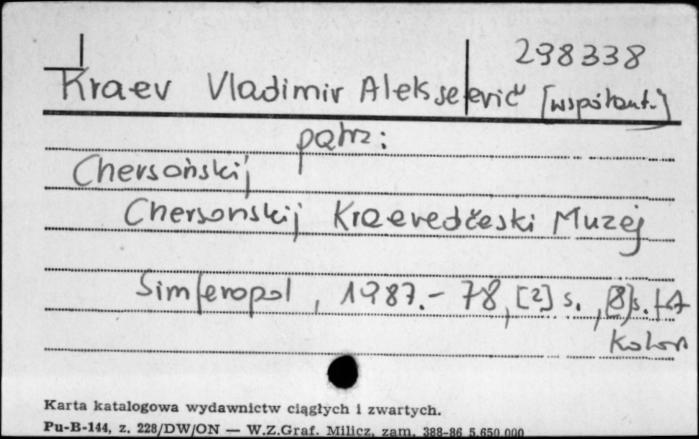 298338
Kraev Vladimir Alekseevič [współaut.]
patrz:
Chersońskij
Chersonskij Kraevedčeski Muzej
Simferopol, 1987. - 78, [2] s., [8] s.
Kolor
Karta katalogowa wydawnictw ciągłych i zwartych.
Pu-B-144, z. 228/DW/ON — W.Z.Graf. Milicz, zam. 388-86 5.650.000